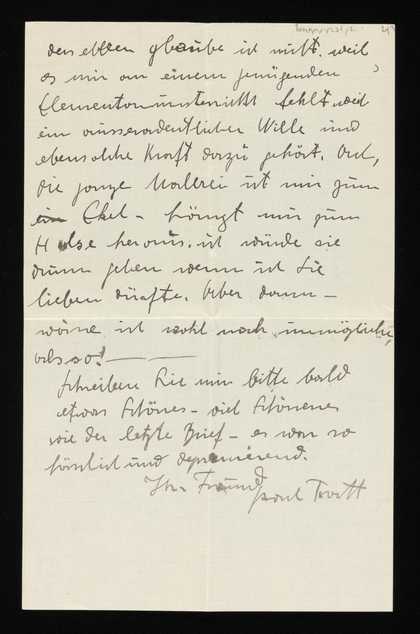 den eben glaube ich nicht. weil
es mir an einem genügenden
Elementarunterricht fehlt, weil
ein ausserordentlicher Wille und
ebensolche Kraft dazu gehört. Und,
die ganze Malerei ist mir zum
ein Ekel – hängt mir zum
Halse heraus. ich würde sie
drum geben wenn ich Sie
lieben dürfte. Aber dann –
wäre ich wohl noch unmöglicher,
also! — —
Schreiben Sie mir bitte bald
etwas Schönes – viel Schöneres
wie der letzte Brief – es war so
und deprimierend.
Ihr Freund